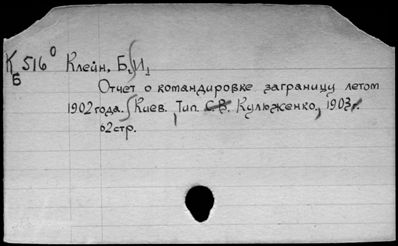 К 516⁰ Клейн, Б. И.
Б
Отчет о командировке заграницу летом
1902 года. Киев. Тип. С.В. Кулюженко, 1903.
62 стр.